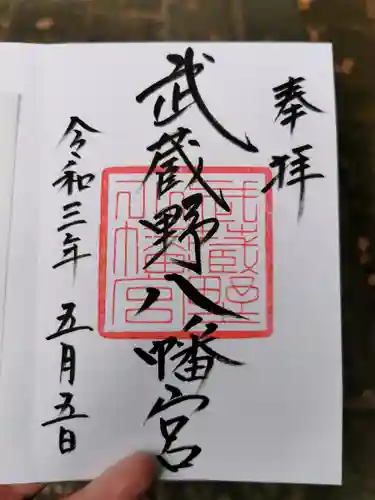 奉拝
武蔵野八幡宮
武蔵野
八幡宮
令和三年 五月五日